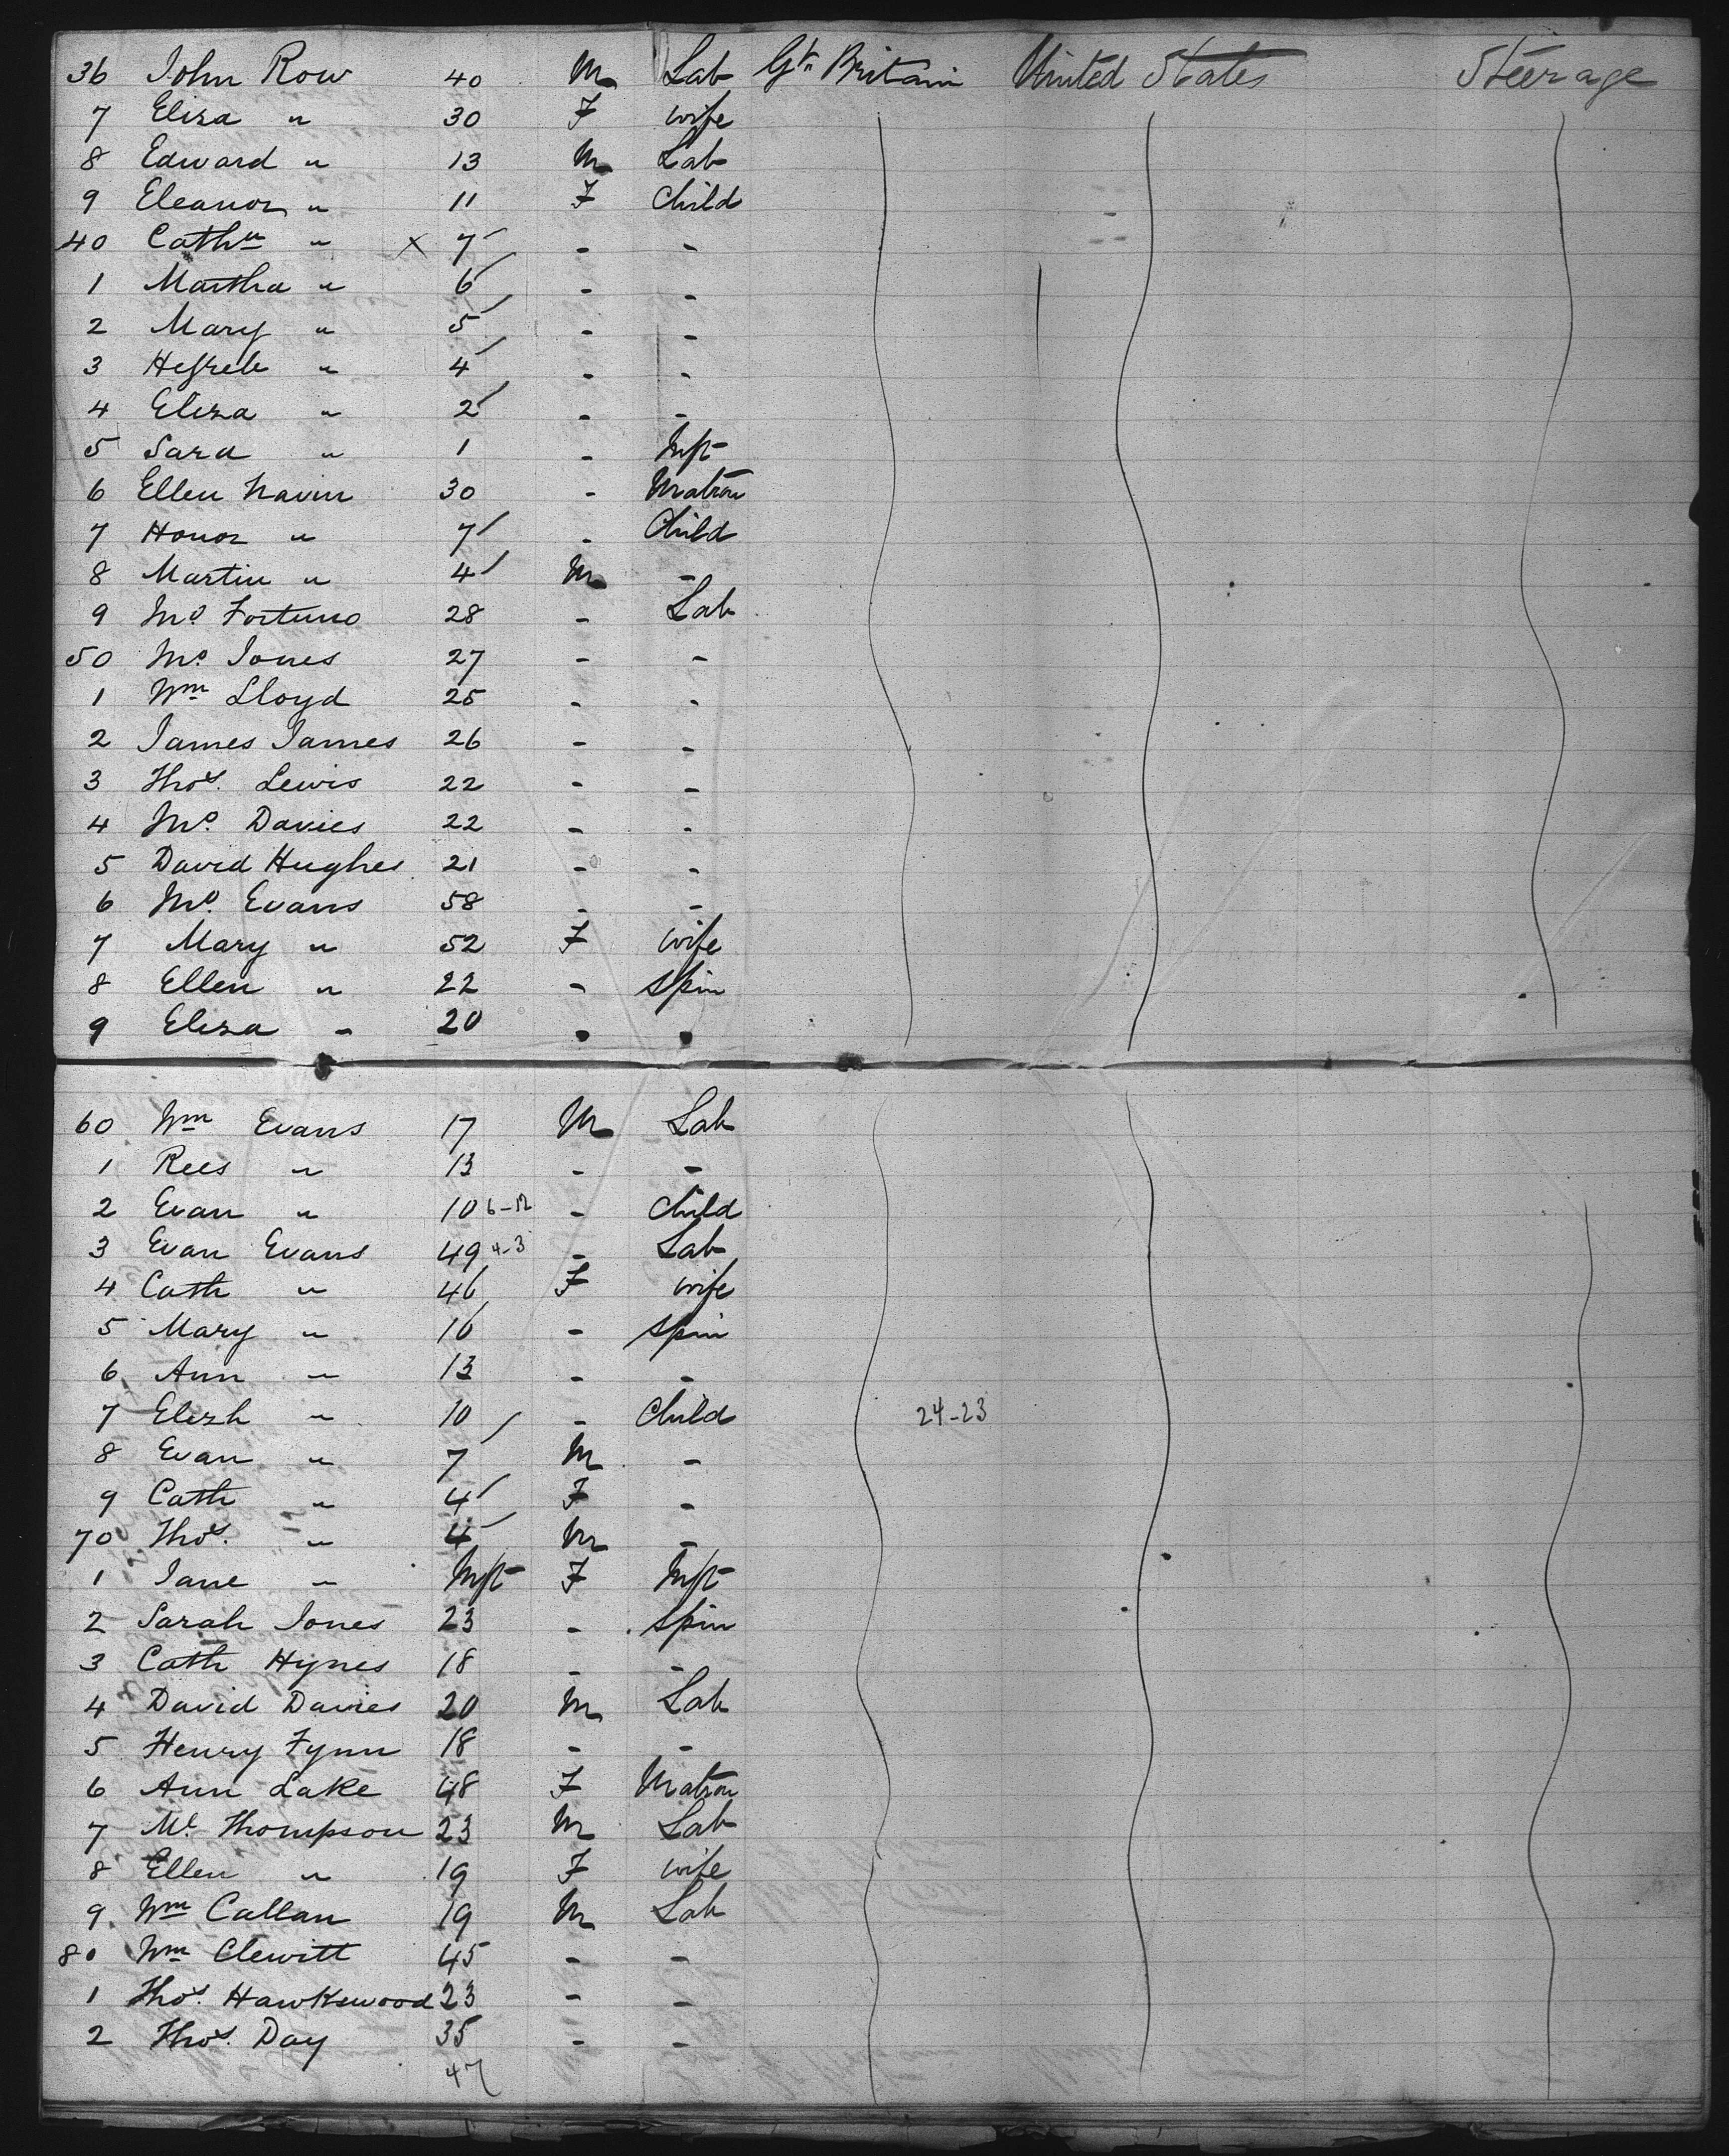 36 John Row 40 M Lab Gt. Britain United States Steerage
7 Eliza " 30 F wife
8 Edward " 13 M Lab
9 Eleanor " 11 F Child
40 Cath " x 7 - -
1 Martha " 6 - -
2 Mary " 5 - -
3 " 4 - -
4 Eliza " 2 - -
5 Sara " 1 - Inft
6 Ellen Navin 30 - Matron
7 Honor " 7 - Child
8 Martin " 4 M -
9 Jno Fortune 28 - Lab
50 Jno Jones 27 - -
1 Wm Lloyd 25 - -
2 James James 26 - -
3 Thos. Lewis 22 - -
4 Jno. Davies 22 - -
5 David Hughes 21 - -
6 Jno. Evans 58 - -
7 Mary " 52 F wife
8 Ellen " 22 - Spin
9 Eliza - 20 - -
60 Wm Evans 17 M Lab
1 Rees " 13 - -
2 Evan " 10 6-12 - Child
3 Evan Evans 49 4-3 - Lab
4 Cath " 46 F wife
5 Mary " 16 - Spin
6 Ann " 13 - -
7 Elizh " 10 - Child 24-23
8 Evan " 7 M -
9 Cath " 4 F -
70 Thos. " 4 M -
1 Jane " Inft F Inft
2 Sarah Jones 23 - Spin
3 Cath Hynes 18 - -
4 David Davies 20 M Lab
5 Henry Fynn 18 - -
6 Ann Lake 48 F Matron
7 Ml Thompson 23 M Lab
8 Ellen " 19 F wife
9 Wm Callan 19 M Lab
80 Wm Clewitt 45 - -
1 Thos. Hawkswood 23 - -
2 Thos. Day 35 - -
47